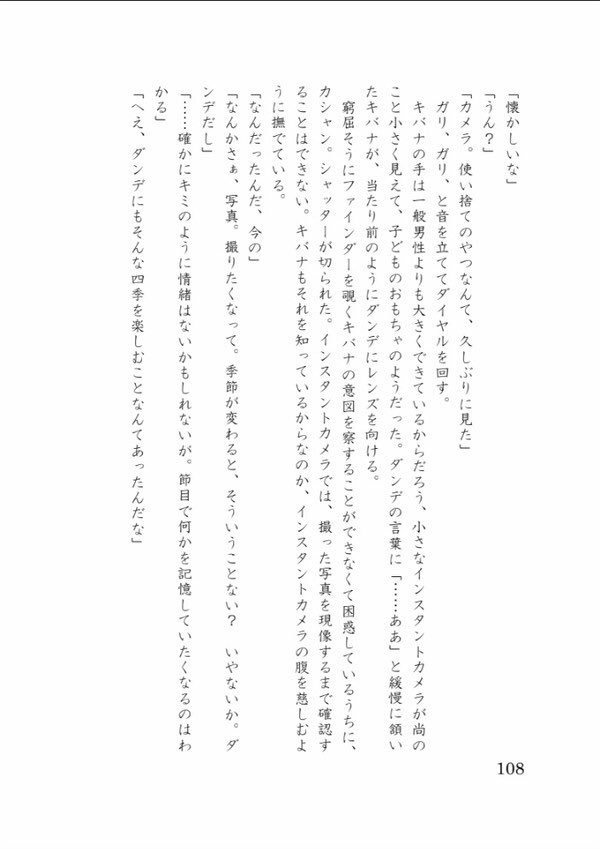 「懐かしいな」
「うん？」
「カメラ。使い捨てのやつなんて、久しぶりに見た」
ガリ、ガリ、と音を立ててダイヤルを回す。
キバナの手は一般男性よりも大きくできているからだろう、小さなインスタントカメラが尚の
こと小さく見えて、子どものおもちゃのようだった。ダンデの言葉に「……ああ」と緩慢に頷い
たキバナが、当たり前のようにダンデにレンズを向ける。
窮屈そうにファインダーを覗くキバナの意図を察することができなくて困惑しているうちに、
カシャン。シャッターが切られた。インスタントカメラでは、撮った写真を現像するまで確認す
ることはできない。キバナもそれを知っているからなのか、インスタントカメラの腹を慈しむよ
うに撫でている。
「なんだったんだ、今の」
「なんかさぁ、写真。撮りたくなって。季節が変わると、そういうことない？　いやないか。ダ
ンデだし」
「……確かにキミのように情緒はないかもしれないが。節目で何かを記憶していたくなるのはわ
かる」
「へえ、ダンデにもそんな四季を楽しむことなんてあったんだな」
108